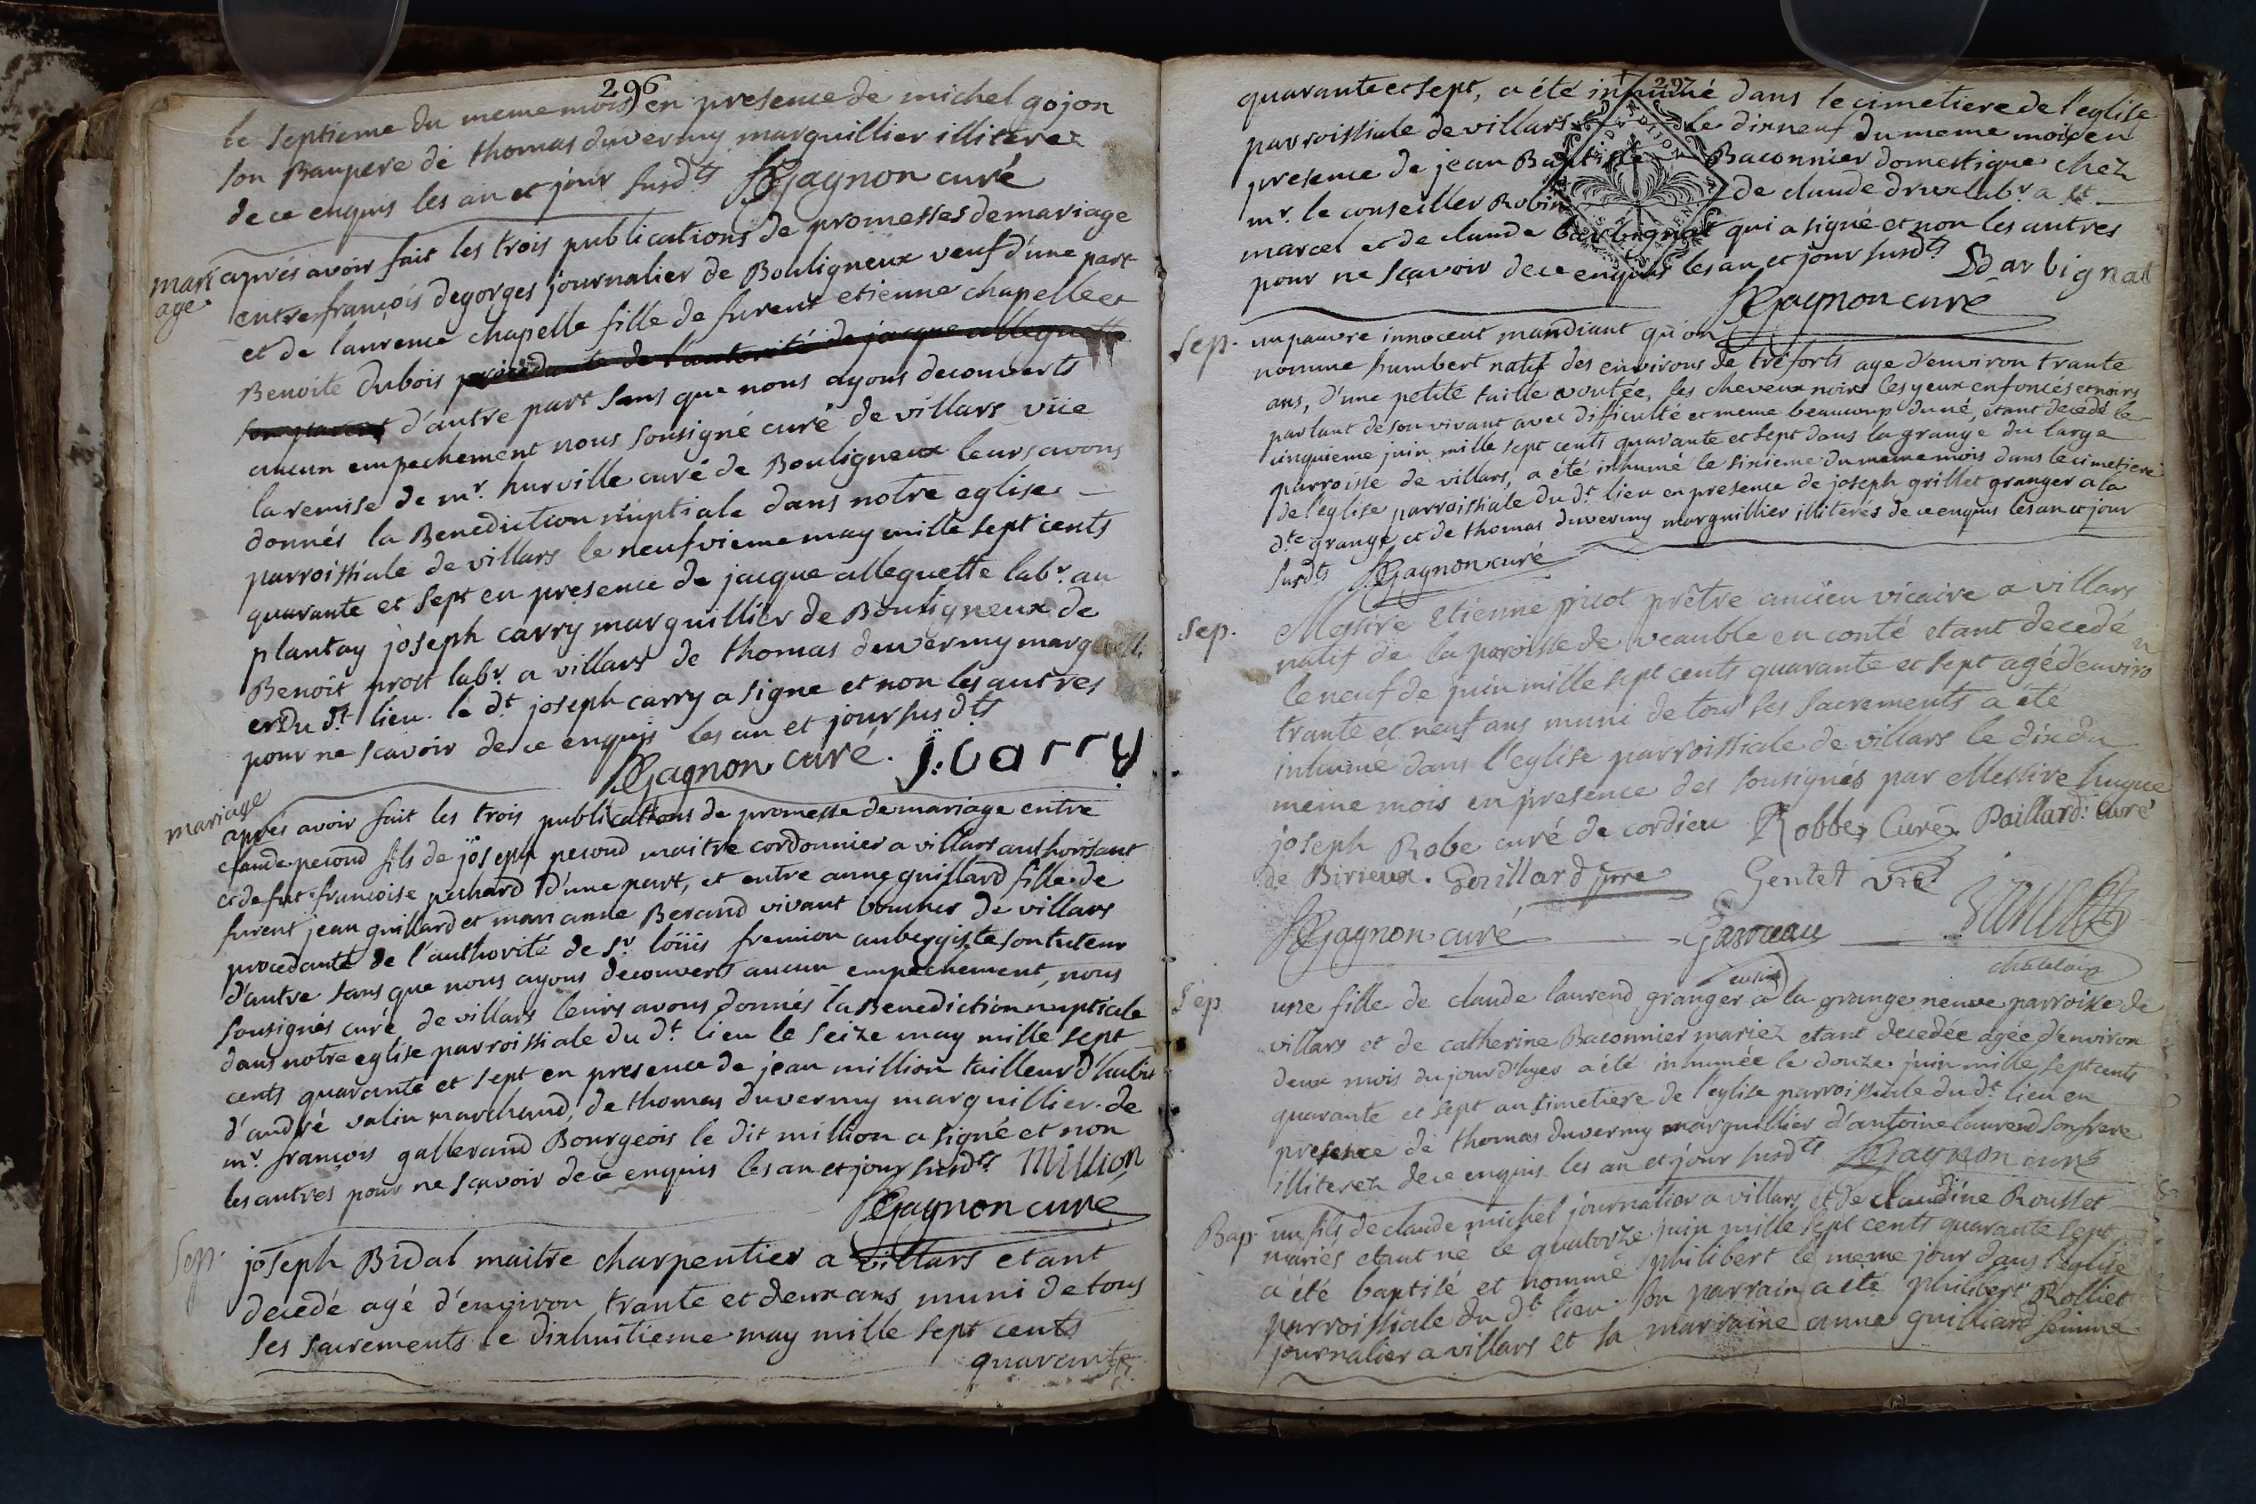 296
le septieme du meme mois en presence de michel gojon
son Baupere de thomas duvermy marguillier illiterez
de ce enquis les an et jour susdts Gagnon curé
mariage
aprés avoir fait les trois publications de promesses de mariage
entre françois degorges journalier de Bouligneux veuf d'une part
et de laurence chapelle fille de furent etienne chapelle et
Benoite dubois procedante de l'autorité de jacque alleguette
d'autre part sans que nous ayons decouverts
aucun empechement nous sousigné curé de villars vüe
la remise de mr. hurville curé de Bouligneux leurs avons
donnés la Benediction nuptiale dans notre eglise
parroissiale de villars le neufvieme may mille sept cents
quarante et sept en presence de jacque alleguette labr. au
plantay joseph carry marguillier de Bouligneux de
Benoit prost labr. a villars de thomas duvermy marguill.
et du dt lieu. le dt joseph carry a signe et non les autres
pour ne scavoir de ce enquis les an et jour susdts
Gagnon curé. j: carry
mariage
aprés avoir fait les trois publications de promesse de mariage entre
claude pecoud fils de joseph pecoud maitre cordonnier a villars authorisant
et de fut francoise pechard d'une part, et entre anne guillard fille de
furent jean guillard et marianne Beraud vivant boucher de villars
procedante de l'authorité de sr. loüis fremion aubergiste son tuteur
d'autre sans que nous ayons decouverts aucun empechement, nous
sousignés curé de villars leurs avons donnés la Benediction nuptiale
dans notre eglise parroissiale du dt lieu le seize may mille sept
cents quarante et sept en presence de jean million tailleur d'habit
d'andré valin marchand, de thomas duvermy marguillier. de
mr. françois gallerand Bourgeois le dit million a signé et non
les autres pour ne scavoir de ce enquis les an et jour susdts million
Gagnon curé
Sep.
joseph Bidal maitre charpentier a villars etant
decedé agé d'environ trante et deux ans muni de tous
ses sacrements le dixhuitieme may mille sept cents
quarante
297
quarante et sept, a été inhumé dans le cimetiere de l'eglise
parroissiale de villars le dixneuf du meme mois en
presence de jean Baptiste Baconnier domestique chez
mr. le conseiller Robin de claude druxlabr. a st
marcel et de claude barbignat qui a signé et non les autres
pour ne scavoir de ce enquis les an et jour susdts Barbignat
Gagnon curé
Sep.
un pauvre innocent mandiant qu'on
nomme humbert natif des environs de treforts age d'environ trante
ans, d'une petite taille voutée, les cheveux noirs les yeux enfoncés et noirs
parlant de son vivant avec difficulté et meme beaucoup du né, étant decedé le
cinquieme juin mille sept cents quarante et sept dans la grange du large
parroisse de villars, a été inhumé le sixieme du meme mois dans le cimetiere
de l'eglise parroissiale du dt lieu en presence de joseph grillet granger a la
dte grange et de thomas duvermy marguillier illiterés de ce enquis les an et jour
susdts Gagnon curé
Sep.
Messire Etienne picot prêtre ancien vicaire a villars
natif de la paroisse de veauble en conté etant decedé
le neuf de juin mille sept cents quarante et sept agé d'environ
trante et neuf ans muni de tous ses sacrements a été
inhumé dans l'eglise parroissiale de villars le dix du
meme mois en presence des sousignés par Messire hugue
joseph Robe curé de cordieu Robbe, Curé. Paillard: Curé
de Birieux. Gouillard ptre Gentet vic.
Gagnon curé Garreau
chatelain
Sep
une fille de claude laurend granger a la grange neuve parroisse de
villars et de catherine Baconnier mariez etant decedée agée d'environ
deux mois du jour d'hyer a été inhumée le douze juin mille sept cents
quarante et sept au cimetiere de l'eglise parroissiale du dt lieu en
presence de thomas duvermy marguillier d'antoine laurend son frere
illiterez de ce enquis les an et jour susdts Gagnon curé
Bap.
un fils de claude michel journalier a villars et de claudine Rousset
mariés etant né le quatorze juin mille sept cents quarante sept
a été baptisé et nommé philibert le meme jour dans l'eglise
parroissiale du dt lieu son parrain a été philibert Rolliet
journalier a villars et sa marraine anne guilliard femme